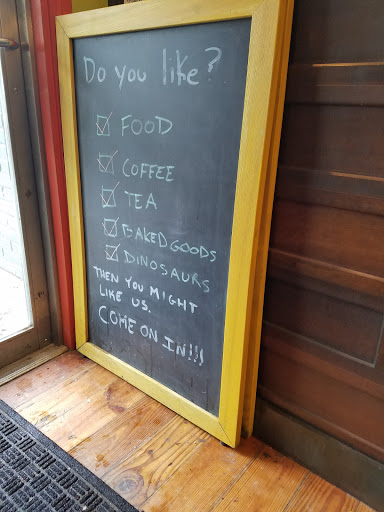 Do you like?
☑ FOOD
☑ COFFEE
☑ TEA
☑ BAKED GOODS
☑ DINOSAURS
THEN YOU MIGHT
LIKE US.
COME ON IN!!!